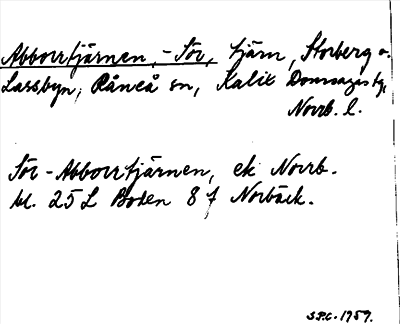 Abborrtjärnen, -Sör, tjärn, Storberg o.
Larsbyn, Råneå sn, Kalix Domsagas tg,
Norrb. l.
Sör-Abborrtjärnen, ek Norrb.
bl. 25 L Boden 8 f Norbäck.
S.P.C. 1959.